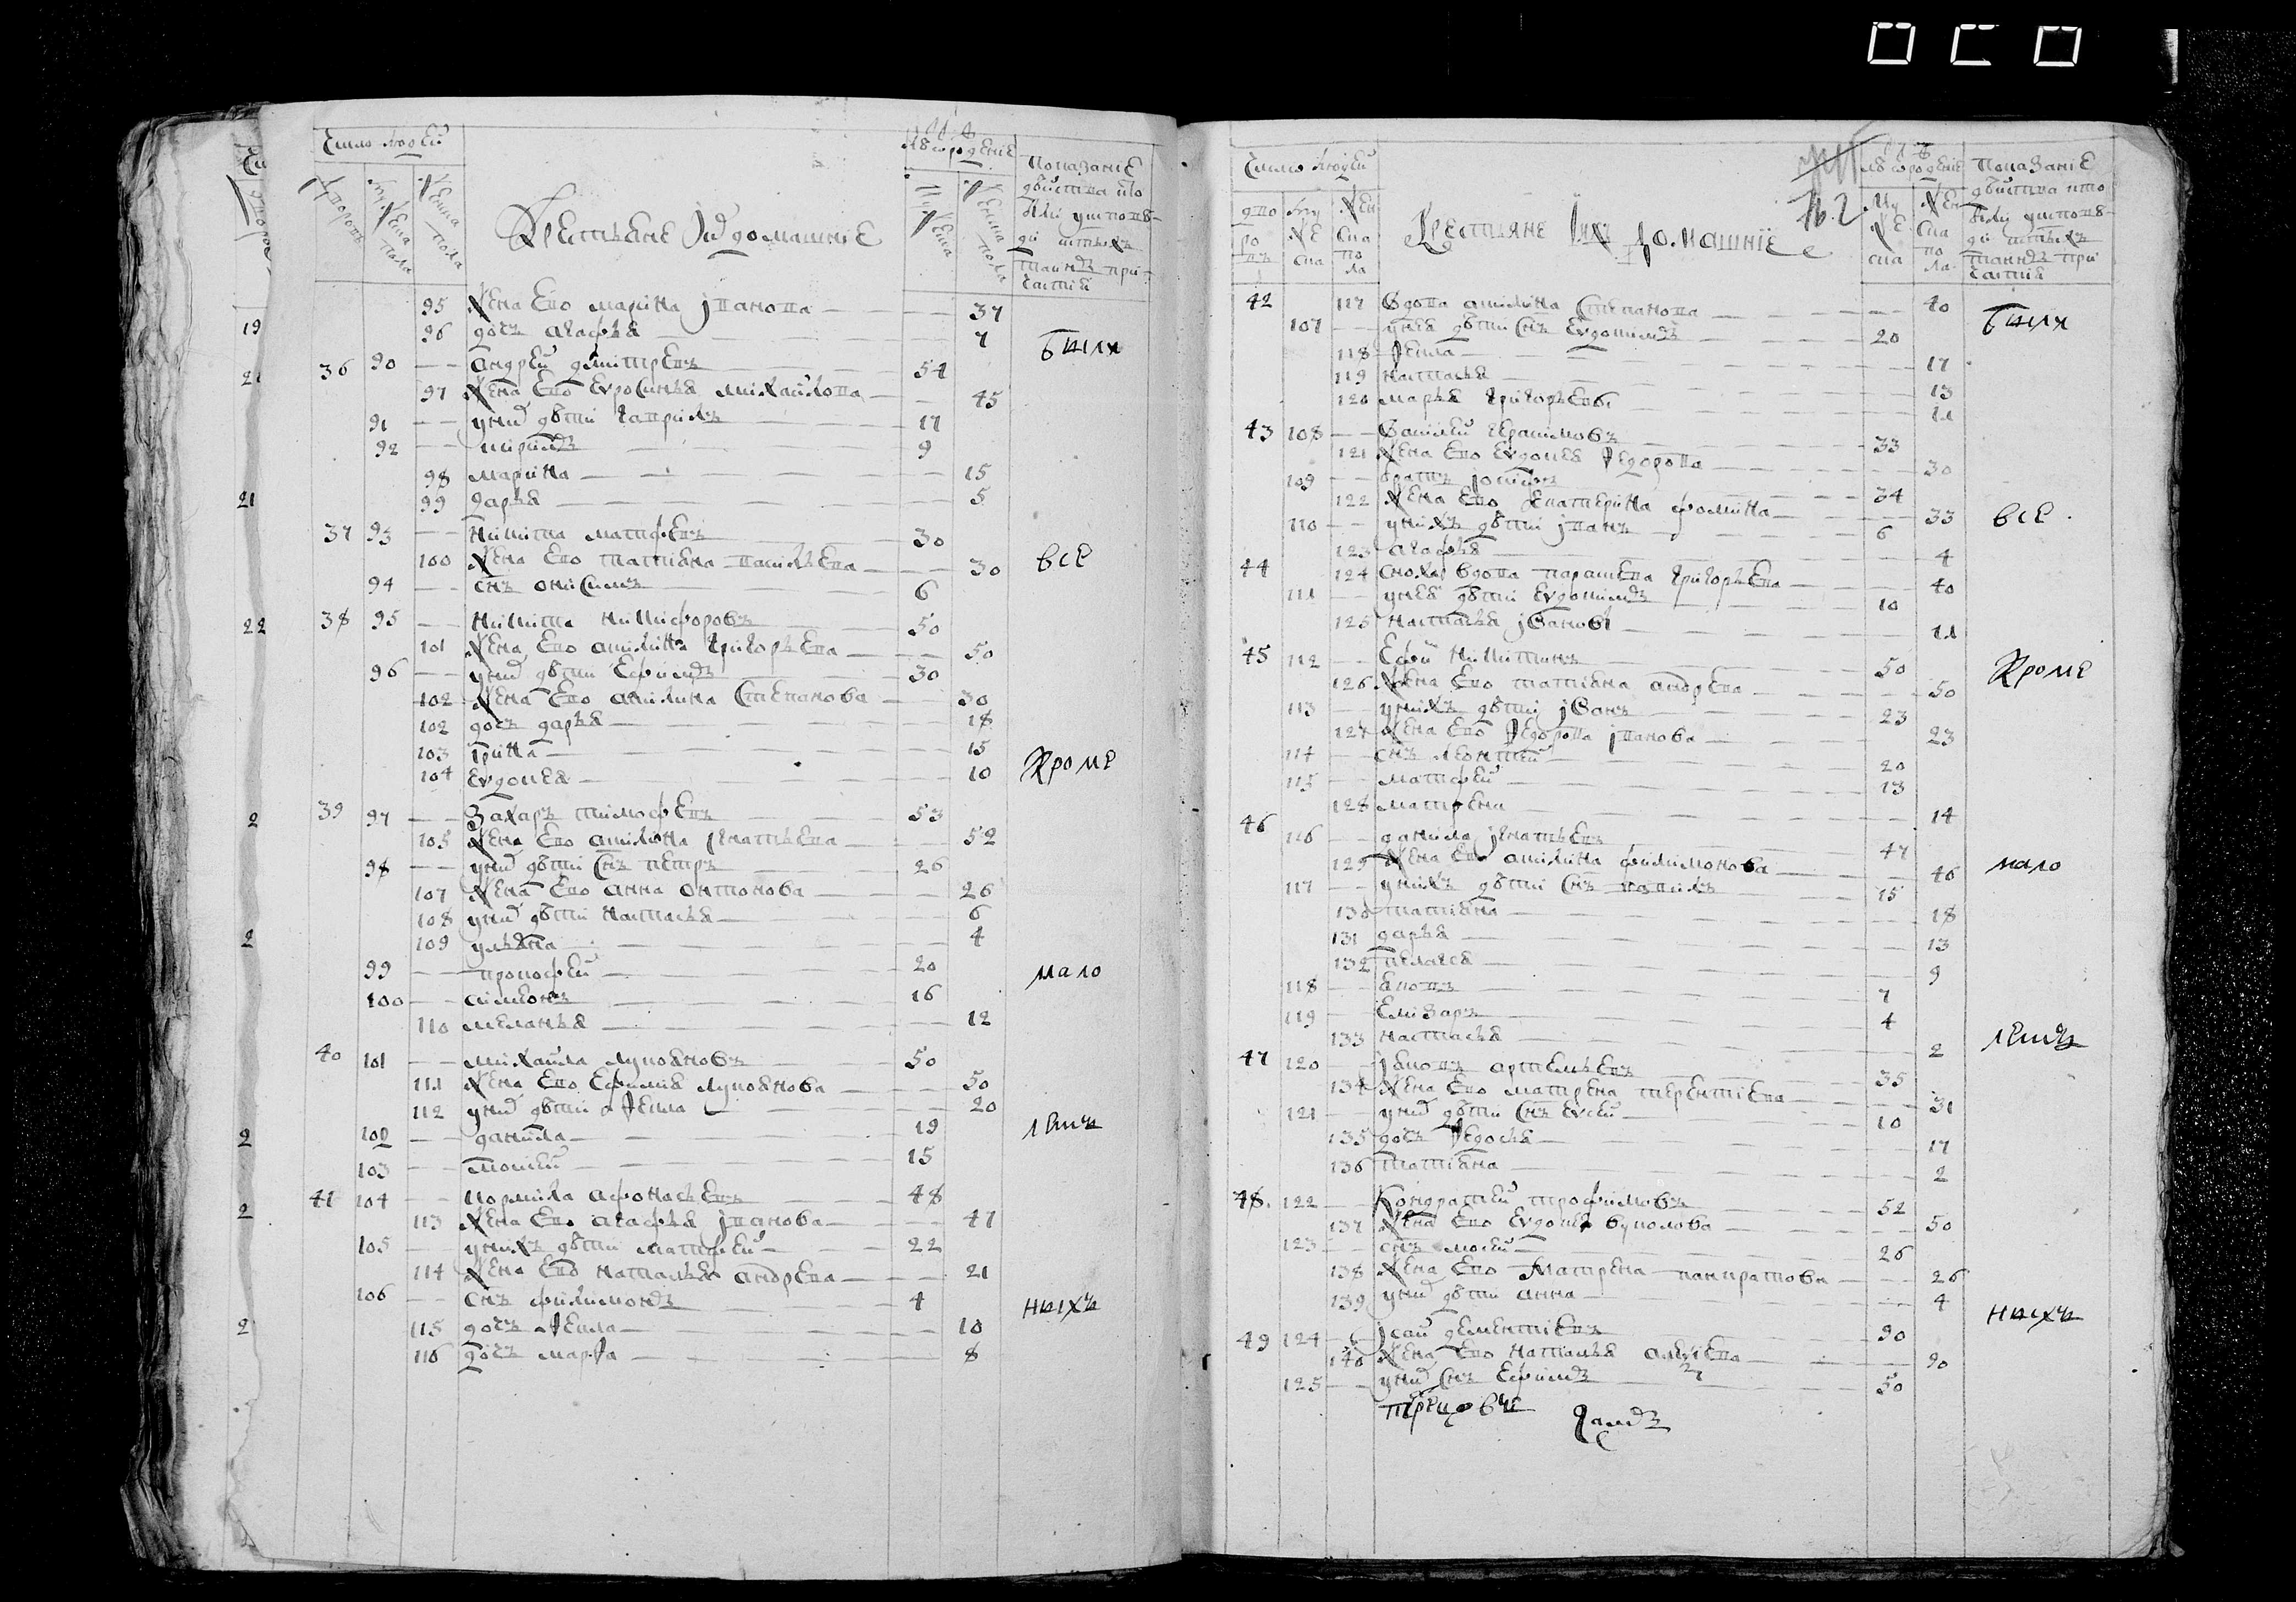 Число людей
Лѣ ѿ рожденіе
Показаніе
дѣйства кто
были у исповѣ-
ди и с тѣхъ
таинъ при-
частія
Дворовъ
Мужеска пола
Женска пола
Крестьяне и ихъ домашніе
Мужеска
Женска пола
95 Жена его марина іванова 37
96 дочь агафья 7
были
36 90 Андрей дмитревъ 54
97 Жена его евросинья михайлова 45
91 у них дѣти гаврилъ 17
92 9
98 марина 15
99 дарья 5
37 93 никита матфеевъ 30
100 Жена его татіяна васильева 30
все
94 снъ онисимъ 6
38 95 никита никифоровъ 50
101 Жена его акилина григорьева 50
96 у них дѣти Ефимъ 30
102 Жена его акилина Степанова 30
102 дочь дарья 18
103 ірина 15
кроме
104 евдокея 10
39 97 Захаръ тимофеевъ 53
105 Жена его акилина игнатьева 52
98 у них дѣти снъ петръ 26
107 Жена его анна антонова 26
108 у них дѣти настасья 6
109 ульяна 4
99 прокофей 20
мало
100 симеонъ 16
110 меланья 12
40 101 михайла лукояновъ 50
111 Жена его Ефимия лукоянова 50
112 у них дѣти ѳекла 20
102 данила 19
лѣтнъ
103 мокей 15
41 104 кормила афонасьевъ 48
113 Жена его агафья іванова 47
105 у нихъ дѣти матфей 22
114 Жена его наталья андрева 21
106 снъ филимонъ 4
ныхъ
115 дочь ѳекла 10
116 дочь марѳа 8
Число людей
Лѣ ѿ рожденіе
Показаніе
дѣйства кто
были у исповѣ-
ди и с тѣхъ
таинъ при-
частія
дво ро въ
Му же ска
Жен ска по ла
Крестьяне ихъ домашніе
Му же ска
Жен ска по ла
42 117 вдова акилина Степанова 40
были
107 у нея дѣти снъ евдокимъ 20
118 ѳекла 17
119 настасья 13
120 марья григорьевы 11
43 108 василей герасимовъ 33
121 Жена его евдокея ѳедорова 30
109 братъ іосифъ 34
122 Жена его екатерина фомина 33
все
110 у нихъ дѣти іванъ 6
123 агафья 4
44 124 сноха вдова параскева григорьева 40
111 у нея дѣти евдокимъ 10
125 настасья івановы 11
45 112 Ефи никитинъ 50
кроме
126 Жена его татіяна андрева 50
113 у нихъ дѣти іванъ 23
127 Жена его ѳедора іванова 23
114 снъ леонтей 20
115 матфей 13
128 матрена 14
46 116 данила игнатьевъ 47
129 Жена его акилина филимонова 46
мало
117 у нихъ дѣти снъ 15
130 татіяна 18
131 дарья 13
132 пелагея 9
118 яковъ 7
119 Елизаръ 4
133 настасья 2
лѣтнъ
47 120 іяковъ артемьевъ 35
134 Жена его матрена терентіева 31
121 у них дѣти снъ евсей 10
135 дочь ѳедосья 17
136 татіяна 2
48. 122 Кондратей трофимовъ 52
137 Жена его евдокея вуколова 50
123 снъ мокей 26
138 Жена его матрена панкратова 26
139 у них дѣти анна 4
ныхъ
49 124 ісай дементіевъ 90
140 Жена его наталья алексіева 90
125 у них снъ Ефимъ 50